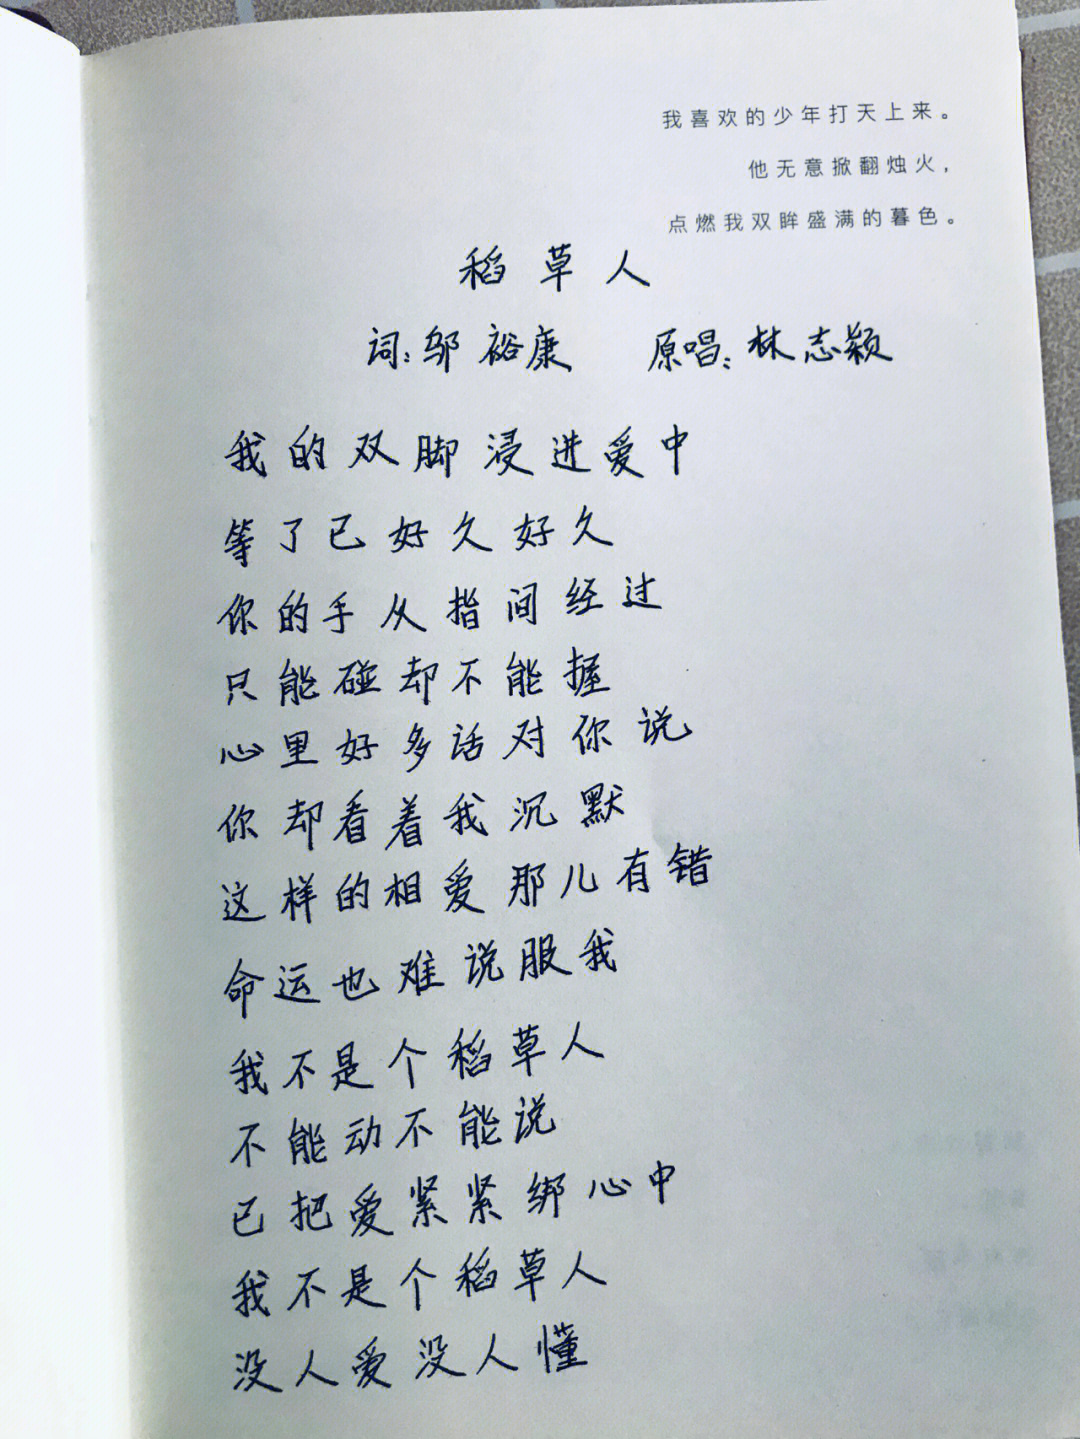 我喜欢的少年打天上来。
他无意掀翻烛火，
点燃我双眸盛满的暮色。
稻草人
词：邬裕康 原唱：林志颖
我的双脚浸进爱中
等了已好久好久
你的手从指间经过
只能碰却不能握
心里好多话对你说
你却看着我沉默
这样的相爱那儿有错
命运也难说服我
我不是个稻草人
不能动不能说
已把爱紧紧绑心中
我不是个稻草人
没人爱没人懂